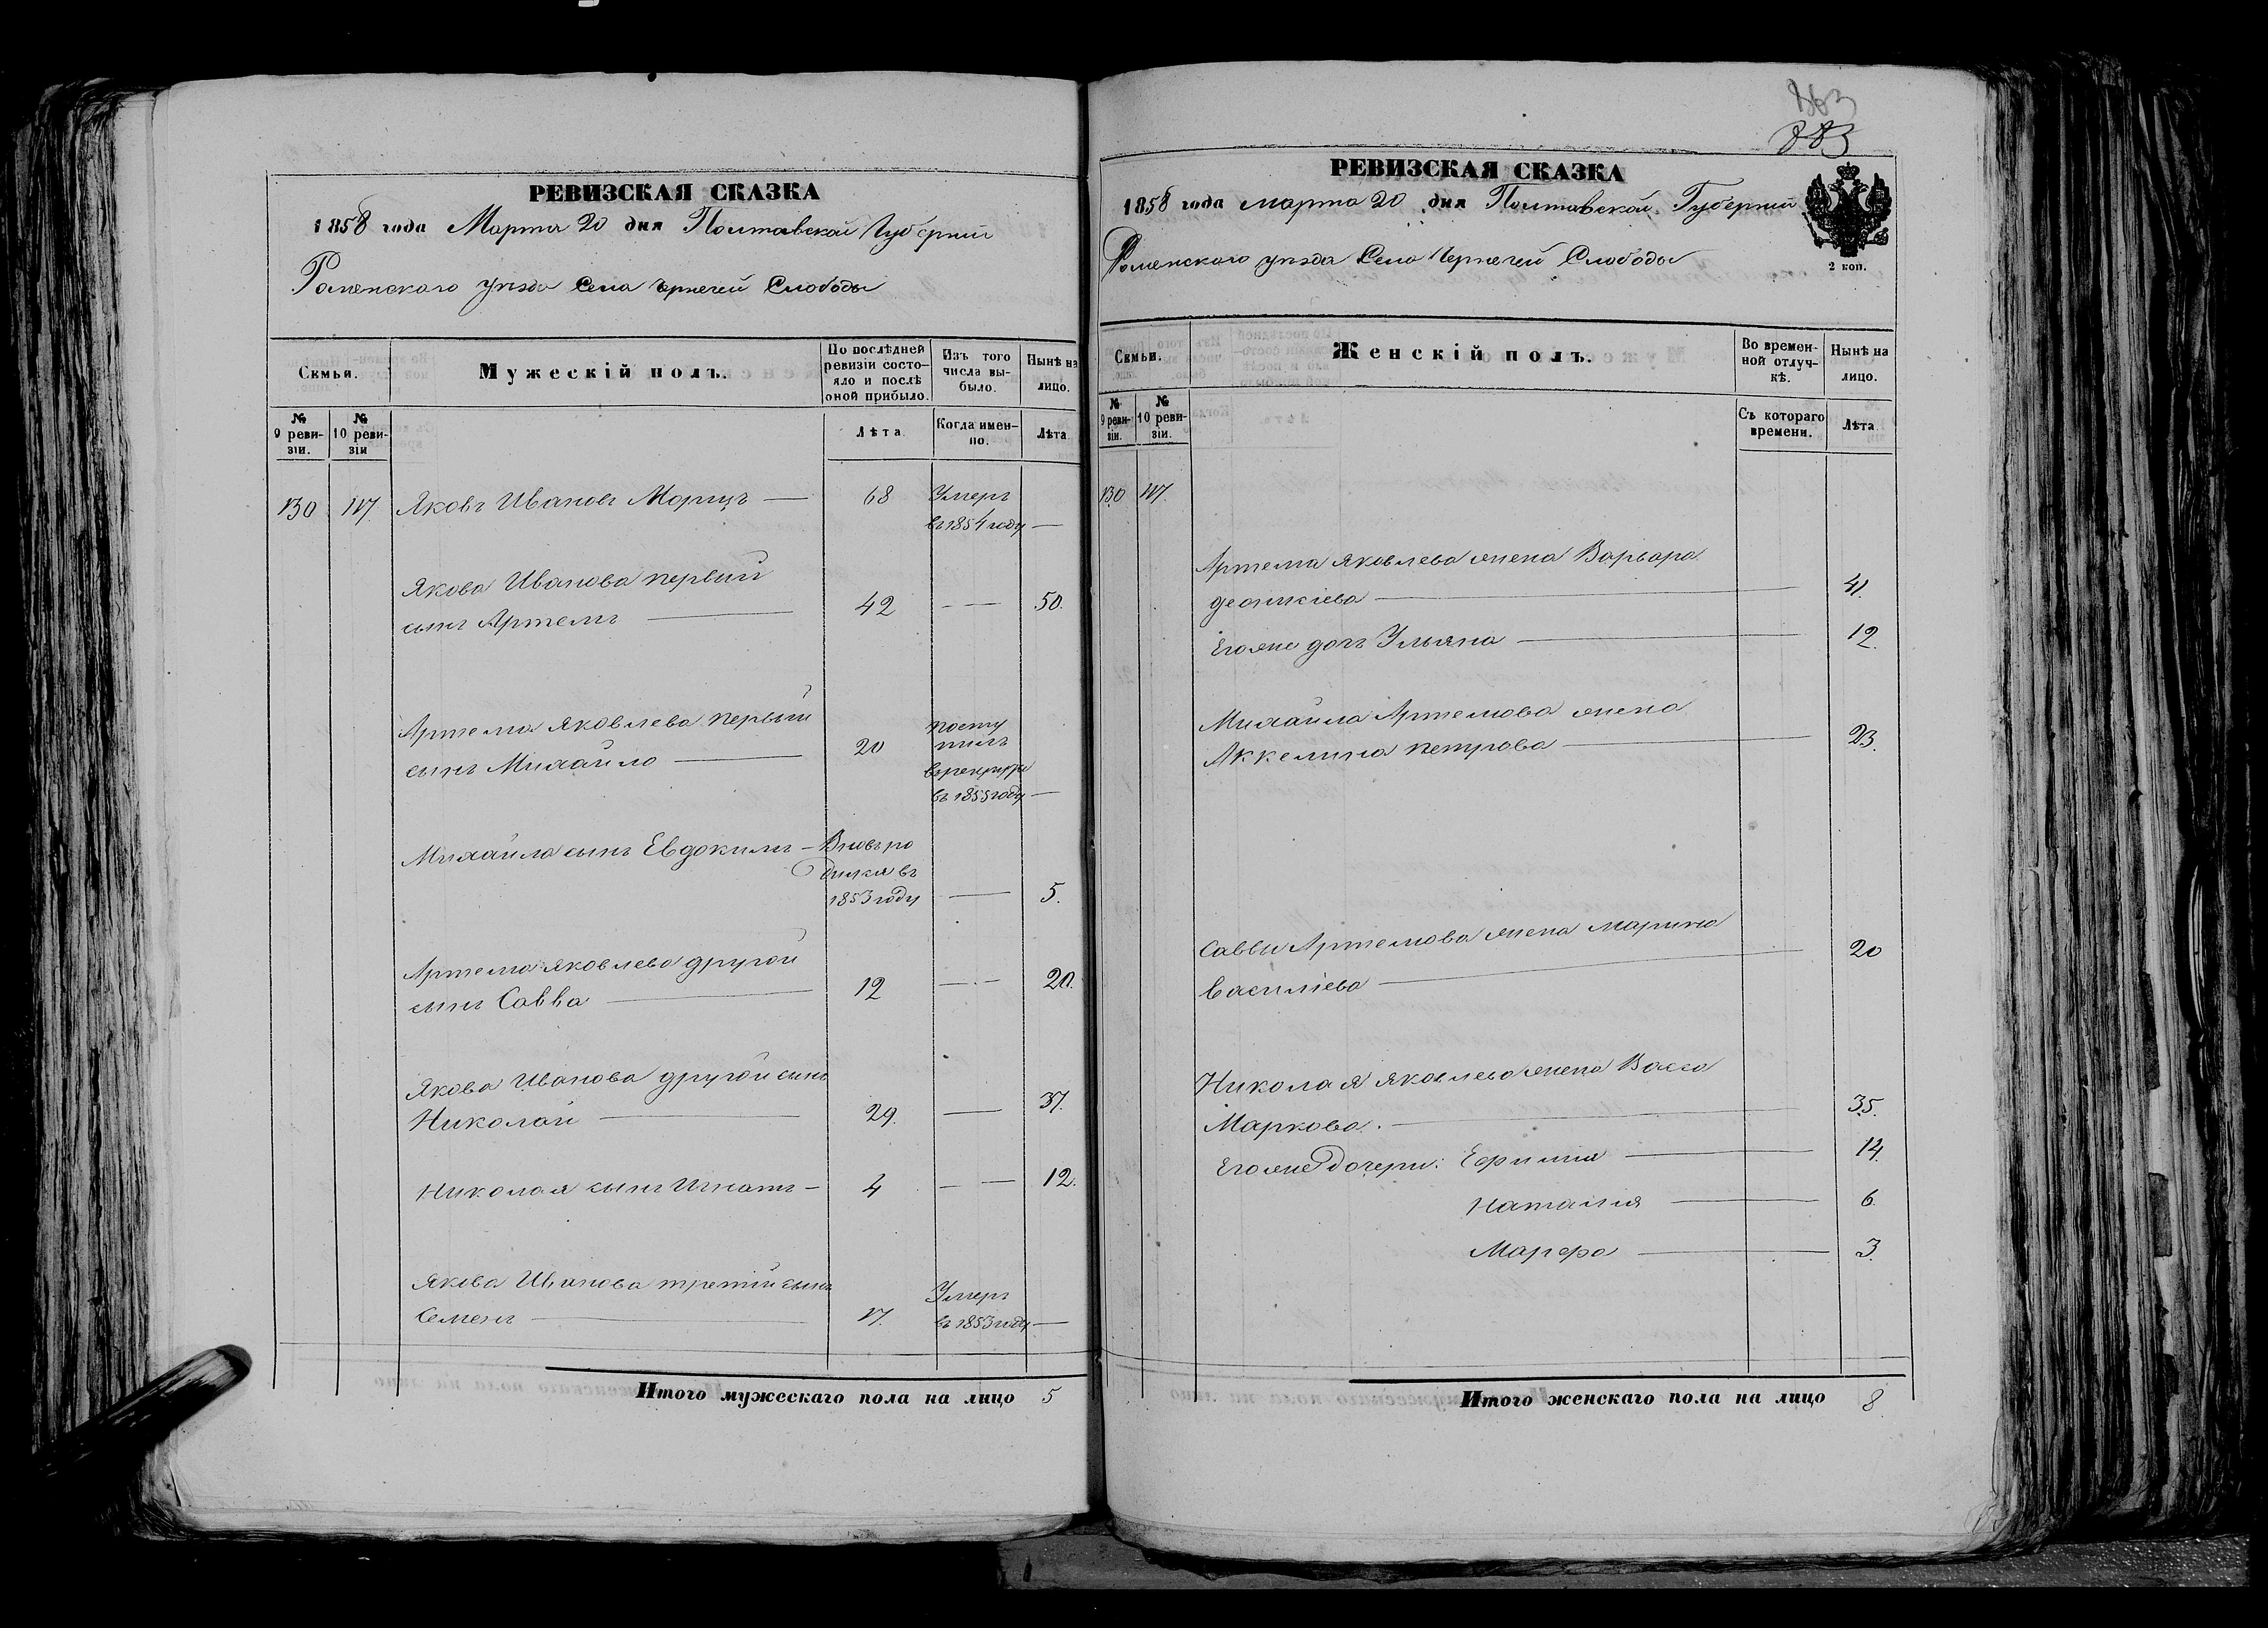 РЕВИЗСКАЯ СКАЗКА
1858 года Марта 20 дня Полтавской Губернии
Роменского уезда Села Чернечей Слободы
Семьи.
Мужескій полъ.
По послѣдней ревизіи состояло и послѣ оной прибыло.
Изъ того числа выбыло.
Нынѣ на лицо.
№ 9 ревизіи.
№ 10 ревизіи
Лѣта
Когда именно.
Лѣта
130 117. Яковъ Ивановъ Морицъ — 68 Умеръ
въ 1854 году —
Якова Иванова первый
сынъ Артемъ — 42 — — 50.
Артема Яковлева первый
сынъ Михайло — 20 посту
пилъ
въ рекруты
въ 1855 году —
Михайла сынъ Евдокимъ — Вновь ро
дился въ
1853 году — 5.
Артема Яковлева другой
сынъ Савва — 12 — — 20.
Якова Иванова другой сынъ
Николай — 29. — 37.
Николая сынъ Игнатъ — 4 — — 12.
Якова Иванова третий сынъ
Семенъ — 17. Умеръ
въ 1853 году —
Итого мужескаго пола на лицо 5
863
883
РЕВИЗСКАЯ СКАЗКА
1858 года марта 20 дня Полтавской Губернии
Роменского уезда Села Чернечей Слободы
2 коп.
Семьи.
Женскій полъ.
Во временной отлучкѣ.
Нынѣ на лицо.
№ 9 ревизіи.
№ 10 ревизіи.
Съ котораго времени.
Лѣта
130 117.
Артема Яковлева жена Варвара
— 41.
Его же дочь Ульяна — 12.
Михайла Артемова жена
Аккелина петрова — 23.
Саввы Артемова жена Марина
Василіева — 20
Николая Яковлева жена Васса
Маркова. — 35.
Его же дочери: Ефимия — 14.
Наталия — 6.
Марфа — 3.
Итого женскаго пола на лицо 8.